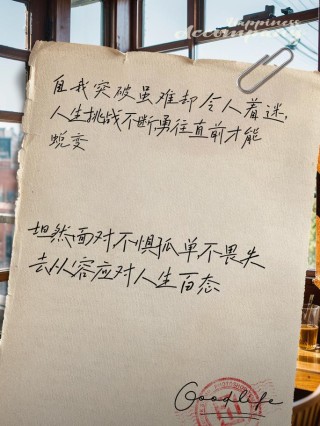 Happiness
accompany
自我突破虽难却令人着迷,
人生挑战不断勇往直前才能
蜕变
坦然面对不惧孤单不畏失
去从容应对人生百态
Goodlife